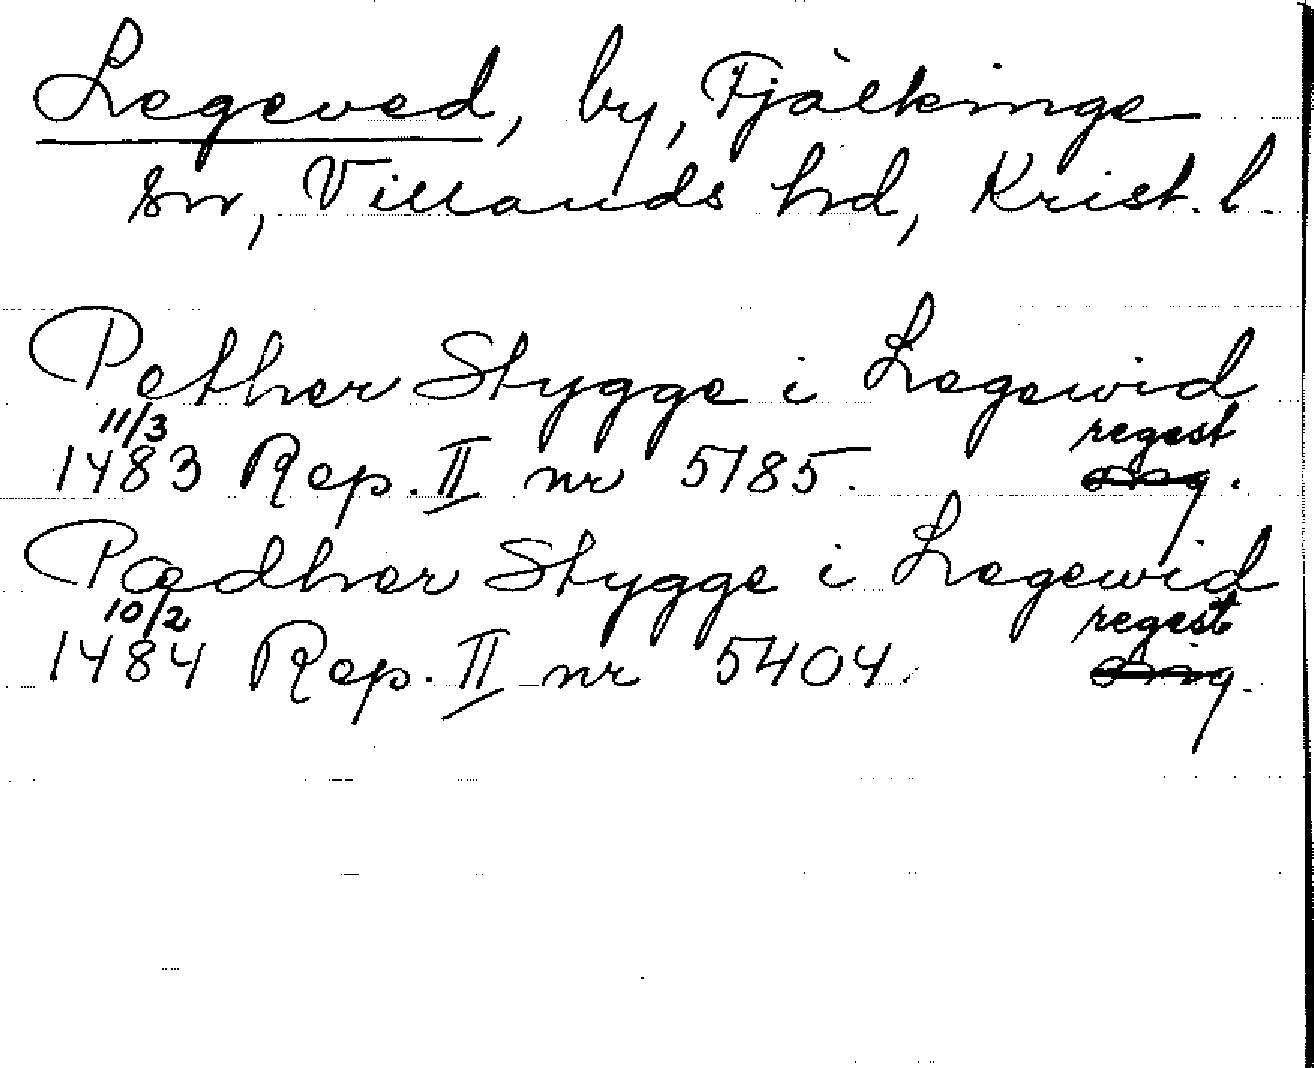 Legeved, by, Fjälkinge
sn, Villands hd, Krist. l.
Pether Stygge i Legewid
11/3 regest
1483 Rep. II nr 5185. orig.
Pædher Stygge i Legewid
10/2 regest
1484 Rep. II nr 5404. orig.